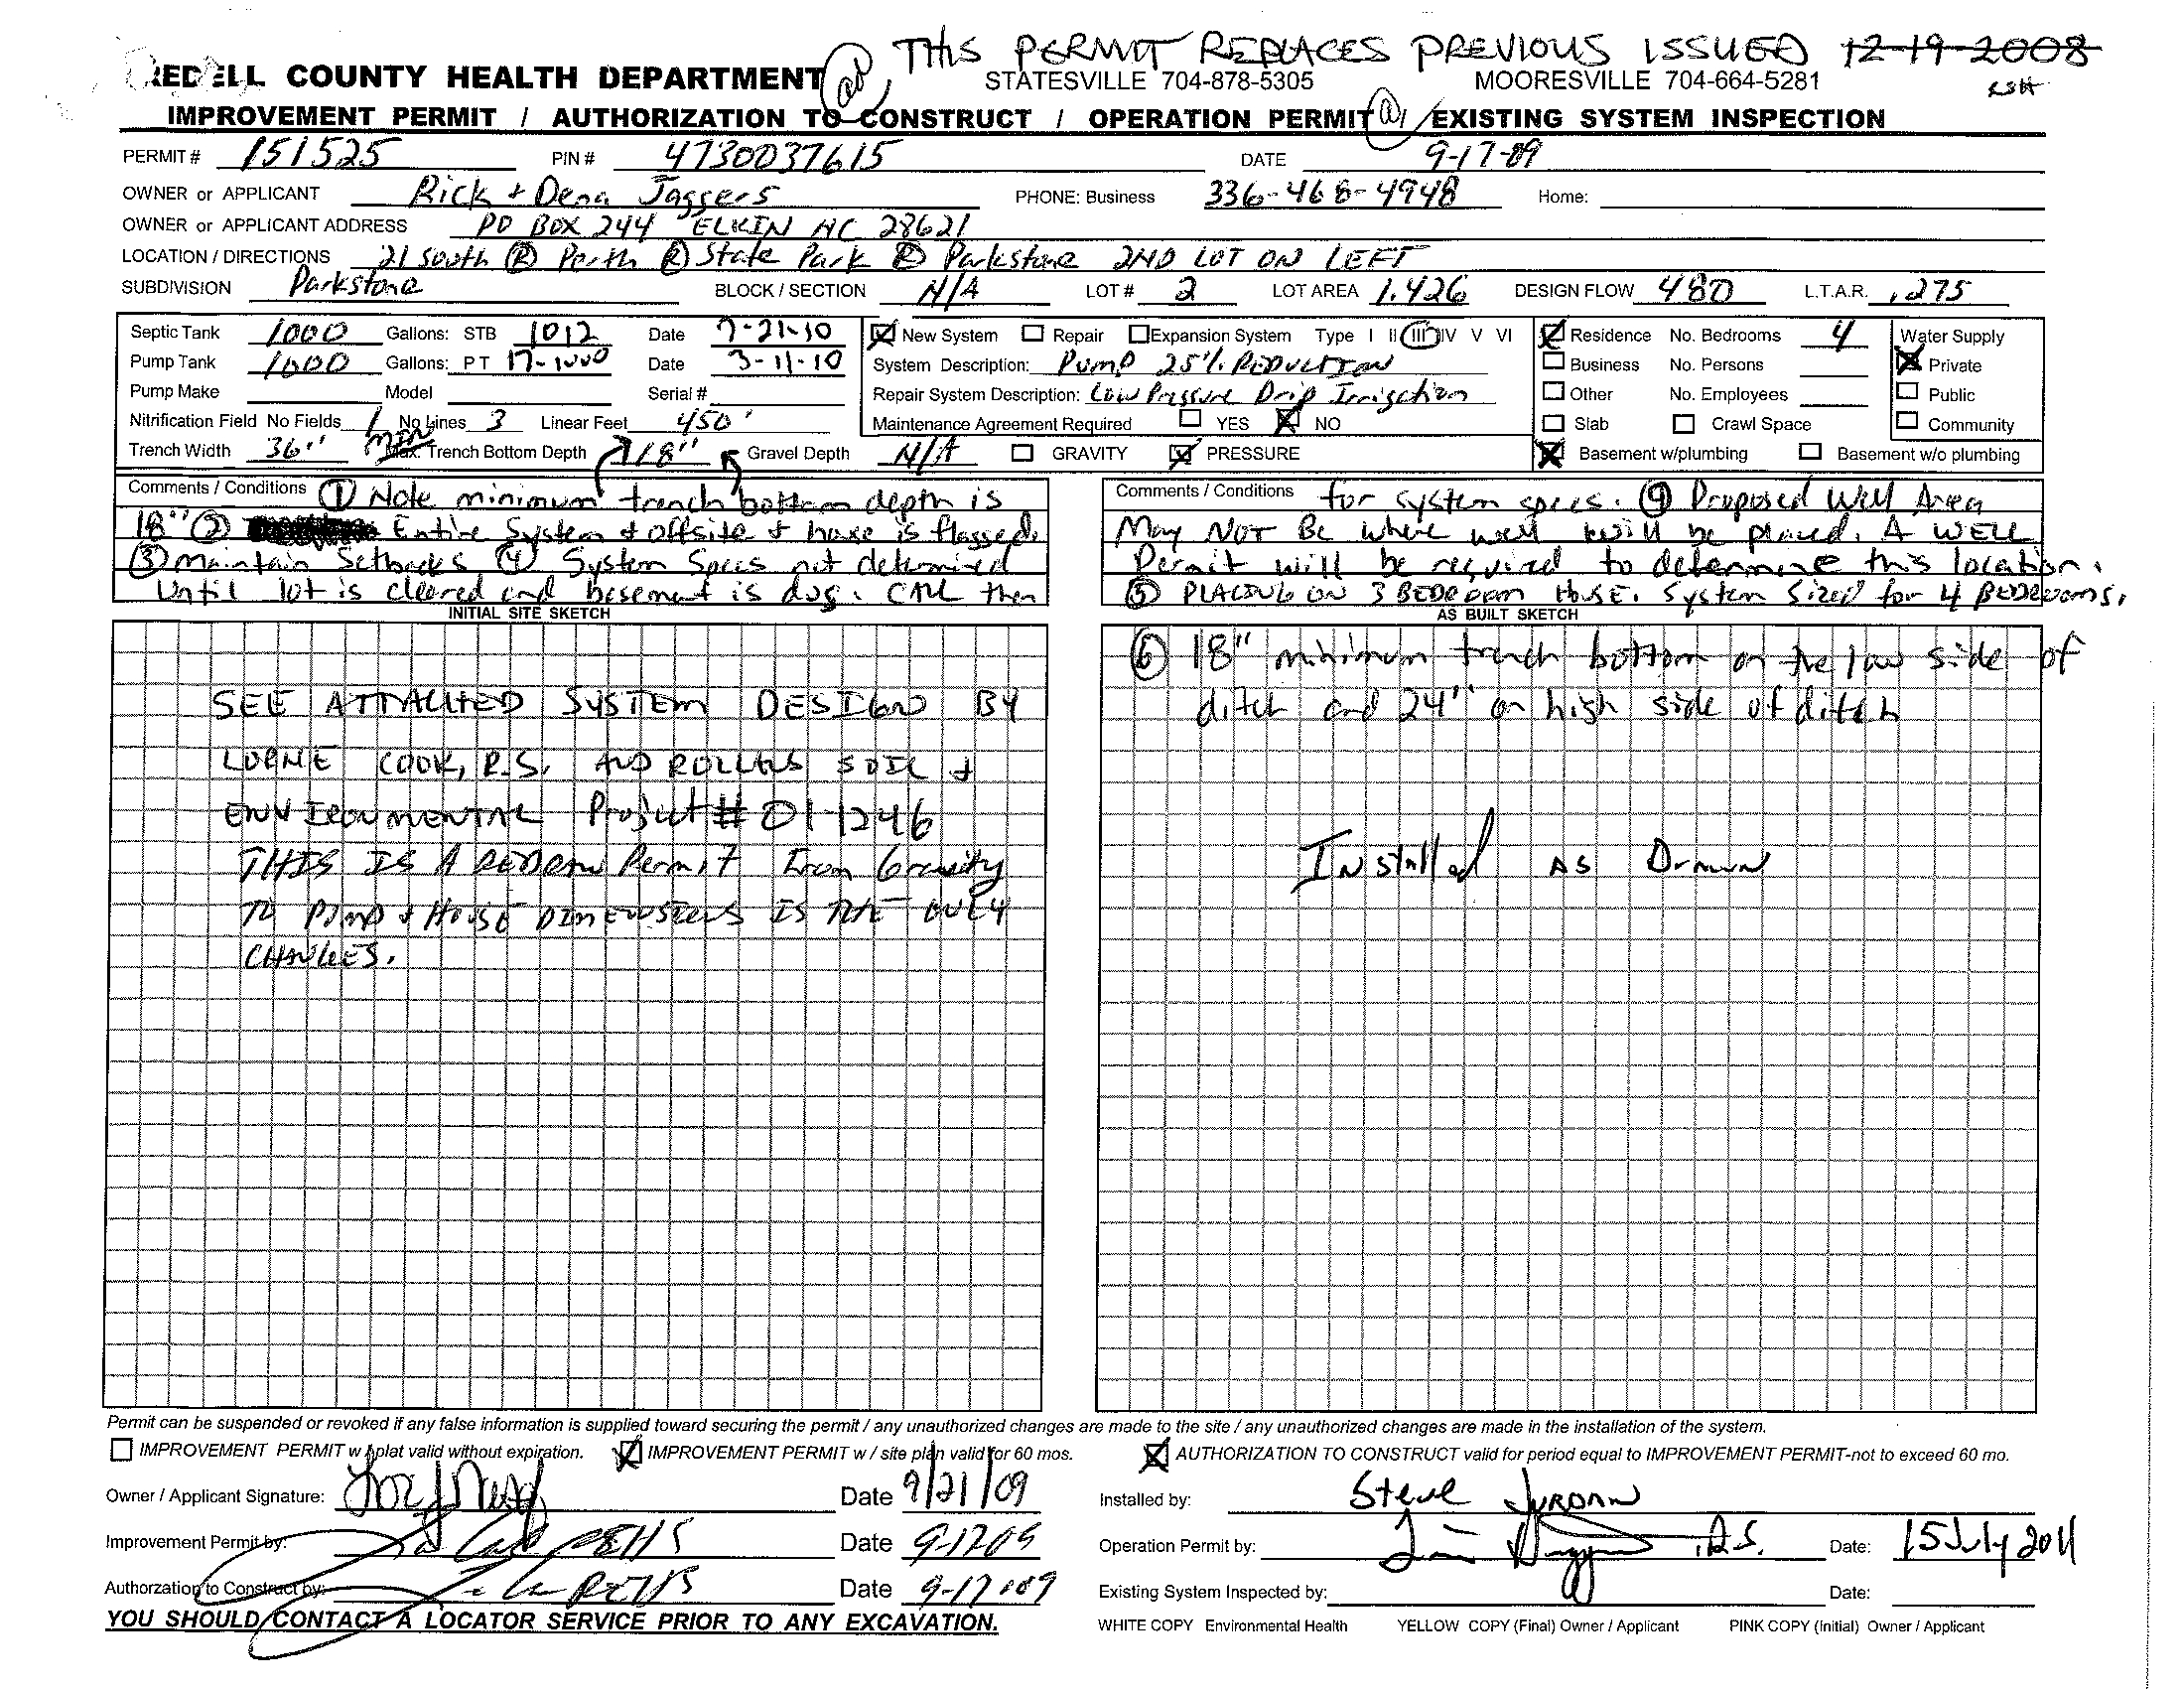 THIS PERMIT REPLACES PREVIOUS ISSUED 12-19-2008
IREDELL COUNTY HEALTH DEPARTMENT STATESVILLE 704-878-5305 MOORESVILLE 704-664-5281
IMPROVEMENT PERMIT / AUTHORIZATION TO CONSTRUCT / OPERATION PERMIT / EXISTING SYSTEM INSPECTION
PERMIT # 151525 PIN # 4730037615 DATE 9-17-09
OWNER or APPLICANT Rick + Dena Jaggers PHONE: Business 336-468-4948 Home:
OWNER or APPLICANT ADDRESS PO BOX 244 ELKIN NC 28621
LOCATION / DIRECTIONS 21 South (R) Perth (R) State Park (R) Parkstone 2ND LOT ON LEFT
SUBDIVISION Parkstone BLOCK / SECTION N/A LOT # 2 LOT AREA 1.426 DESIGN FLOW 480 L.T.A.R. .275
Septic Tank 1000 Gallons: STB 1012 Date 7-21-10 New System Repair Expansion System Type I II III IV V VI Residence No. Bedrooms 4 Water Supply
Pump Tank 1000 Gallons: PT 17-1000 Date 3-11-10 System Description: Pump 25% REDUCTION Business No. Persons Private
Pump Make Model Serial # Repair System Description: Low Pressure Drip Irrigation Other No. Employees Public
Nitrification Field No Fields 1 No Lines 3 Linear Feet 450' Maintenance Agreement Required YES NO Slab Crawl Space Community
Trench Width 36" MIN Max. Trench Bottom Depth 18" Gravel Depth N/A GRAVITY PRESSURE Basement w/plumbing Basement w/o plumbing
Comments / Conditions (1) Note minimum trench bottom depth is
18" (2) Entire System + offsite + house is flagged.
(3) Maintain Setbacks (4) System Specs not determined
Until lot is cleared and basement is dug. CALL then
Comments / Conditions for system specs. (4) Proposed Well Area
May NOT Be where well will be placed. A WELL
Permit will be required to determine this location.
(5) PLANNING ON 3 BEDROOM HOUSE. System Sized for 4 BEDROOMS.
INITIAL SITE SKETCH
SEE ATTACHED SYSTEM DESIGN BY
LORNE COOK, R.S. AND ROLLINS SOIL +
ENVIRONMENTAL Project # 01-1246
THIS IS A REDRAW Permit From Gravity
TO PUMP + HOUSE DIMENSIONS IS THE ONLY
CHANGES.
AS BUILT SKETCH
(6) 18" minimum trench bottom on the low side of
ditch and 24" on high side of ditch
Installed AS Drawn
Permit can be suspended or revoked if any false information is supplied toward securing the permit / any unauthorized changes are made to the site / any unauthorized changes are made in the installation of the system.
IMPROVEMENT PERMIT w / plat valid without expiration. IMPROVEMENT PERMIT w / site plan valid for 60 mos. AUTHORIZATION TO CONSTRUCT valid for period equal to IMPROVEMENT PERMIT-not to exceed 60 mo.
Owner / Applicant Signature: Date 9/21/09
Improvement Permit by: REHS Date 9-17-09
Authorzation to Construct by: REHS Date 9-17-09
YOU SHOULD CONTACT A LOCATOR SERVICE PRIOR TO ANY EXCAVATION.
Installed by: Steve JORDAN
Operation Permit by: R.S. Date: 15 July 2011
Existing System Inspected by: Date:
WHITE COPY Environmental Health YELLOW COPY (Final) Owner / Applicant PINK COPY (Initial) Owner / Applicant